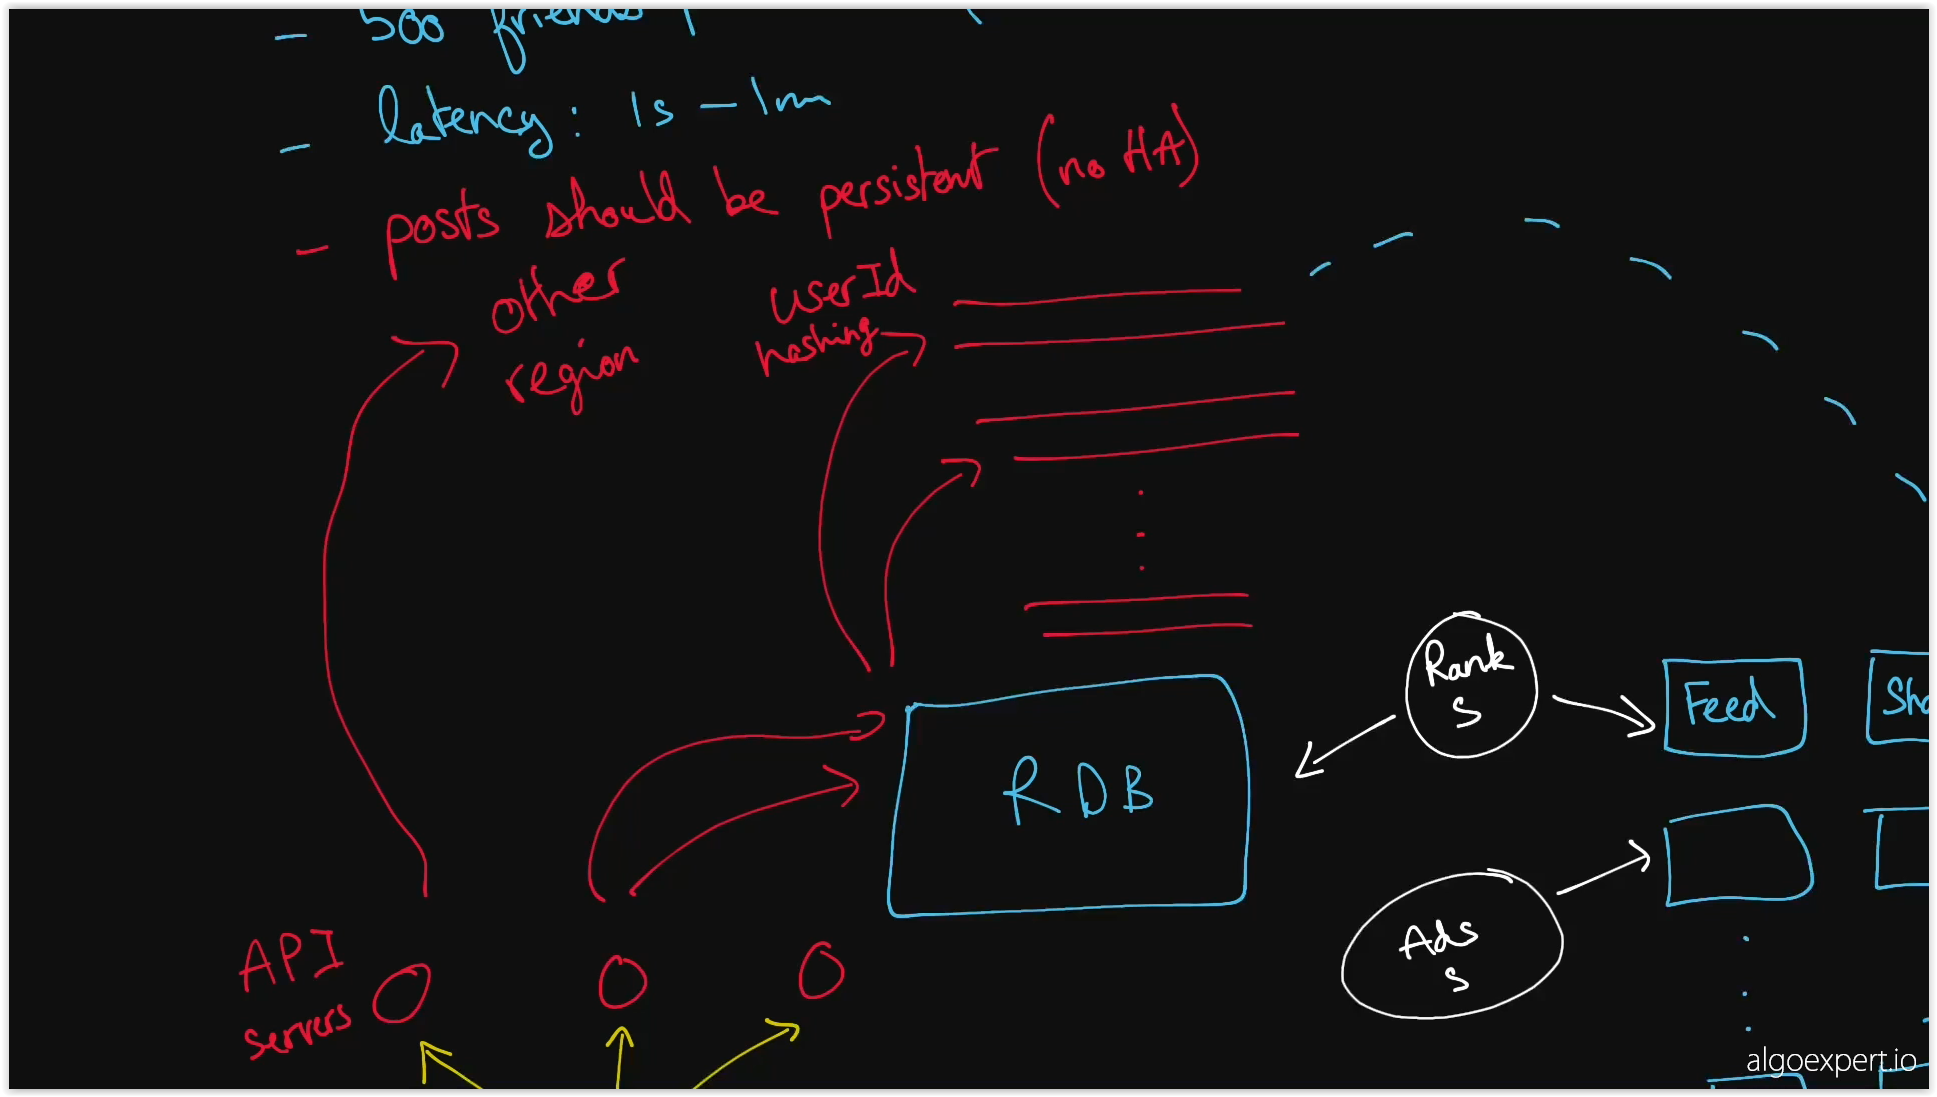 - 500 friends
- latency: 1s - 1m
- posts should be persistent (no HA)
other
region
userId
hashing
Rank
S
Feed
Sha
RDB
Ads
S
API
servers
algoexpert.io